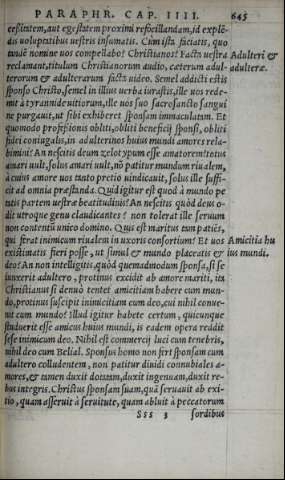 PARAPHR. CAP. IIII. 645
ceßitem, aut egestatem proximi reficiendam, id explẽ-
dis uoluptatibus uestris insumatis. Cum ista faciatis, quo
nouiẽ nomine uos compellabo? Christianos? Facta uestra
reclamant, titulum Christianorum audio, cæterum adul-
terorum & adulterarum facta uideo. Semel addicti estis
sponso Christo, semel in illius uerba iurastis, ille uos rede-
mit à tyrannide uitiorum, ille uos suo sacrosancto sangui
ne purgauit, ut sibi exhiberet sponsam immaculatam. Et
quomodo profeßionis obliti, obliti beneficij sponsi, obliti
fidei coniugalis, in adulterinos huius mundi amores rela-
bimini? An nescitis deum zelotypum esse amatorem? totus
amari uult, solus amari uult, nõ patitur mundum riualem,
à cuius amore uos tanto pretio uindicauit, solus ille suffi-
cit ad omnia præstanda. Quid igitur est quod à mundo pe
tatis partem uestræ beatitudinis? An nescitis quòd deus o-
dit utroque genu claudicantes? non tolerat ille seruum
non contentũ unico domino. Quis est maritus tam patiẽs,
qui ferat inimicum riualem in uxoris consortium? Et uos
existimatis fieri posse, ut simul & mundo placeatis &
deo? An non intelligitis, quòd quemadmodum sponsa, si se
iunxerit adultero, protinus excidit ab amore mariti, ita
Christianus si denuò tentet amicitiam habere cum mun-
do, protinus suscipit inimicitiam cum deo, cui nihil conue-
nit cum mundo? Illud igitur habete certum, quicunque
studuerit esse amicus huius mundi, is eadem opera reddit
sese inimicum deo. Nihil est commercij luci cum tenebris,
nihil deo cum Belial. Sponsus homo non fert sponsam cum
adultero colludentem, non patitur diuidi connubiales a-
mores, & tamen duxit dotatam, duxit ingenuam, duxit re-
bus integris. Christus sponsam suam, quã seruauit ab exi-
tio, quam asseruit à seruitute, quam abluit à peccatorum
Sss 3 sordibus
Adulteri &
adulteræ.
Amicitia hu
ius mundi.